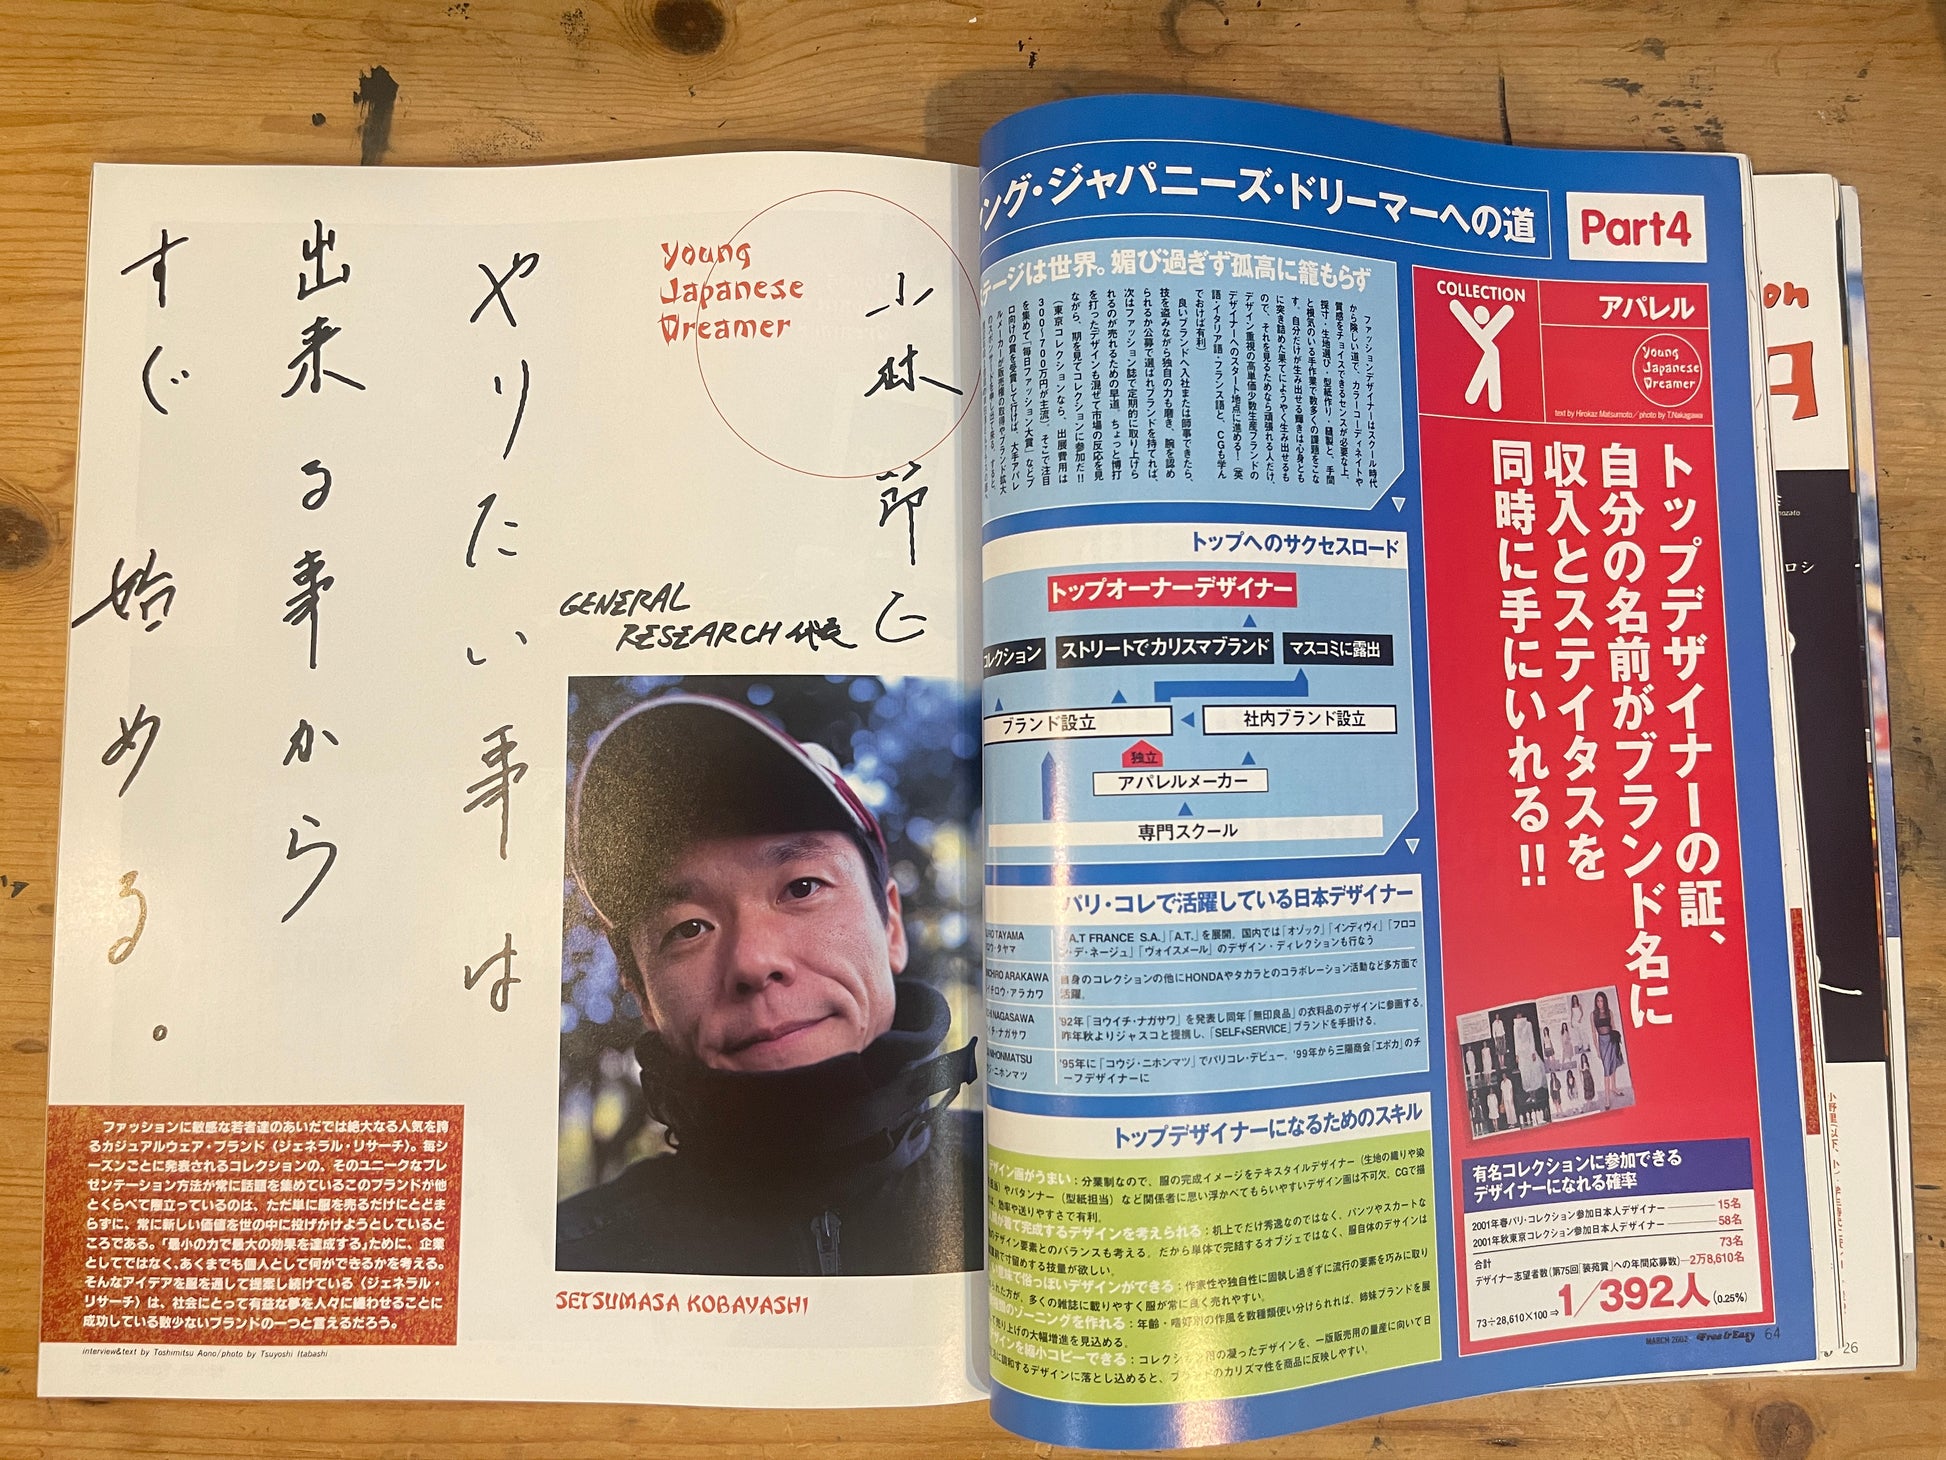 Young
Japanese
Dreamer
小林節正
GENERAL
RESEARCH 代表
やりたい事は
出来る事から
すぐ始める。
SETSUMASA KOBAYASHI
ファッションに敏感な若者達のあいだでは絶大なる人気を誇
るカジュアルウェア・ブランド〈ジェネラル・リサーチ〉。毎シ
ーズンごとに発表されるコレクションの、そのユニークなプレ
ゼンテーション方法が常に話題を集めているこのブランドが他
とくらべて際立っているのは、ただ単に服を売るだけにとどま
らずに、常に新しい価値を世の中に投げかけようとしていると
ころである。「最小の力で最大の効果を達成する」ために、企業
としてではなく、あくまでも個人として何ができるかを考える。
そんなアイデアを服を通して提案し続けている〈ジェネラル・
リサーチ〉は、社会にとって有益な夢を人々に纏わせることに
成功している数少ないブランドの一つと言えるだろう。
interview&text by Toshimitsu Aono/photo by Tsuyoshi Itabashi
ング・ジャパニーズ・ドリーマーへの道
Part4
COLLECTION
アパレル
Young
Japanese
Dreamer
text by Hirokaz Matsumoto/photo by T.Nakagawa
トップデザイナーの証、
自分の名前がブランド名に
収入とステイタスを
同時に手にいれる!!
テージは世界。媚び過ぎず孤高に籠もらず
ファッションデザイナーはスクール時代
から険しい道で、カラーコーディネイトや
質感をチョイスできるセンスが必要な上、
採寸・生地選び・型紙作り・縫製と、手間
と根気のいる手作業で数多くの課題をこな
す。自分だけが生み出せる輝きは心身とも
に突き詰めた果てにようやく生み出せるも
ので、それを見るためなら頑張れる人だけ、
デザイン重視の高単価少数生産ブランドの
デザイナーへのスタート地点に進める！（英
語・イタリア語・フランス語と、CGも学ん
でおけば有利）
良いブランドへ入社または師事できたら、
技を盗みながら独自の力も磨き、腕を認め
られるか公募で選ばれブランドを持てれば、
次はファッション誌で定期的に取り上げら
れるのが売れるための早道。ちょっと博打
を打ったデザインも混ぜて市場の反応を見
ながら、期を見てコレクションに参加だ!!
（東京コレクションなら、出展費用は
300〜700万円が主流）。そこで注目
を集めて「毎日ファッション大賞」などプ
ロ向けの賞を受賞して行けば、大手アパレ
ルメーカーが販売権の取得やブランド拡大
トップへのサクセスロード
トップオーナーデザイナー
コレクション
ストリートでカリスマブランド
マスコミに露出
ブランド設立
社内ブランド設立
独立
アパレルメーカー
専門スクール
パリ・コレで活躍している日本デザイナー
TAYAMA
ロウ・タヤマ
「A.T FRANCE S.A.」「A.T.」を展開。国内では「オゾック」「インディヴィ」「フロコ
ン・デ・ネージュ」「ヴォイスメール」のデザイン・ディレクションも行なう
ICHIRO ARAKAWA
イチロウ・アラカワ
自身のコレクションの他にHONDAやタカラとのコラボレーション活動など多方面で
活躍。
NAGASAWA
イチ・ナガサワ
'92年「ヨウイチ・ナガサワ」を発表し同年「無印良品」の衣料品のデザインに参画する。
昨年秋よりジャスコと提携し、「SELF+SERVICE」ブランドを手掛ける。
NIHONMATSU
ジ・ニホンマツ
'95年に「コウジ・ニホンマツ」でパリコレ・デビュー。'99年から三陽商会「エポカ」のチ
ーフデザイナーに
トップデザイナーになるためのスキル
デザイン画がうまい：分業制なので、服の完成イメージをテキスタイルデザイナー（生地の織りや染
担当）やパタンナー（型紙担当）など関係者に思い浮かべてもらいやすいデザイン画は不可欠。CGで描
効率や送りやすさで有利。
着て完成するデザインを考えられる：机上でだけ秀逸なのではなく、パンツやスカートな
のデザイン要素とのバランスも考える。だから単体で完結するオブジェではなく、服自体のデザインは
寸前で寸留めする技量が欲しい。
意味で俗っぽいデザインができる：作家性や独自性に固執し過ぎずに流行の要素を巧みに取り
られた方が、多くの雑誌に載りやすく服が常に良く売れやすい。
のゾーニングを作れる：年齢・嗜好別の作風を数種類使い分けられれば、姉妹ブランドを展
て売り上げの大幅増進を見込める。
デザインを縮小コピーできる：コレクション用の凝ったデザインを、一版販売用の量産に向けて日
に調和するデザインに落とし込めると、ブランドのカリズマ性を商品に反映しやすい。
有名コレクションに参加できる
デザイナーになれる確率
2001年春パリ・コレクション参加日本人デザイナー 15名
2001年秋東京コレクション参加日本人デザイナー 58名
合計 73名
デザイナー志望者数（第75回「装苑賞」への年間応募数）2万8,610名
73÷28,610×100⇒1/392人(0.25%)
MARCH 2002 Free&Easy 64
26